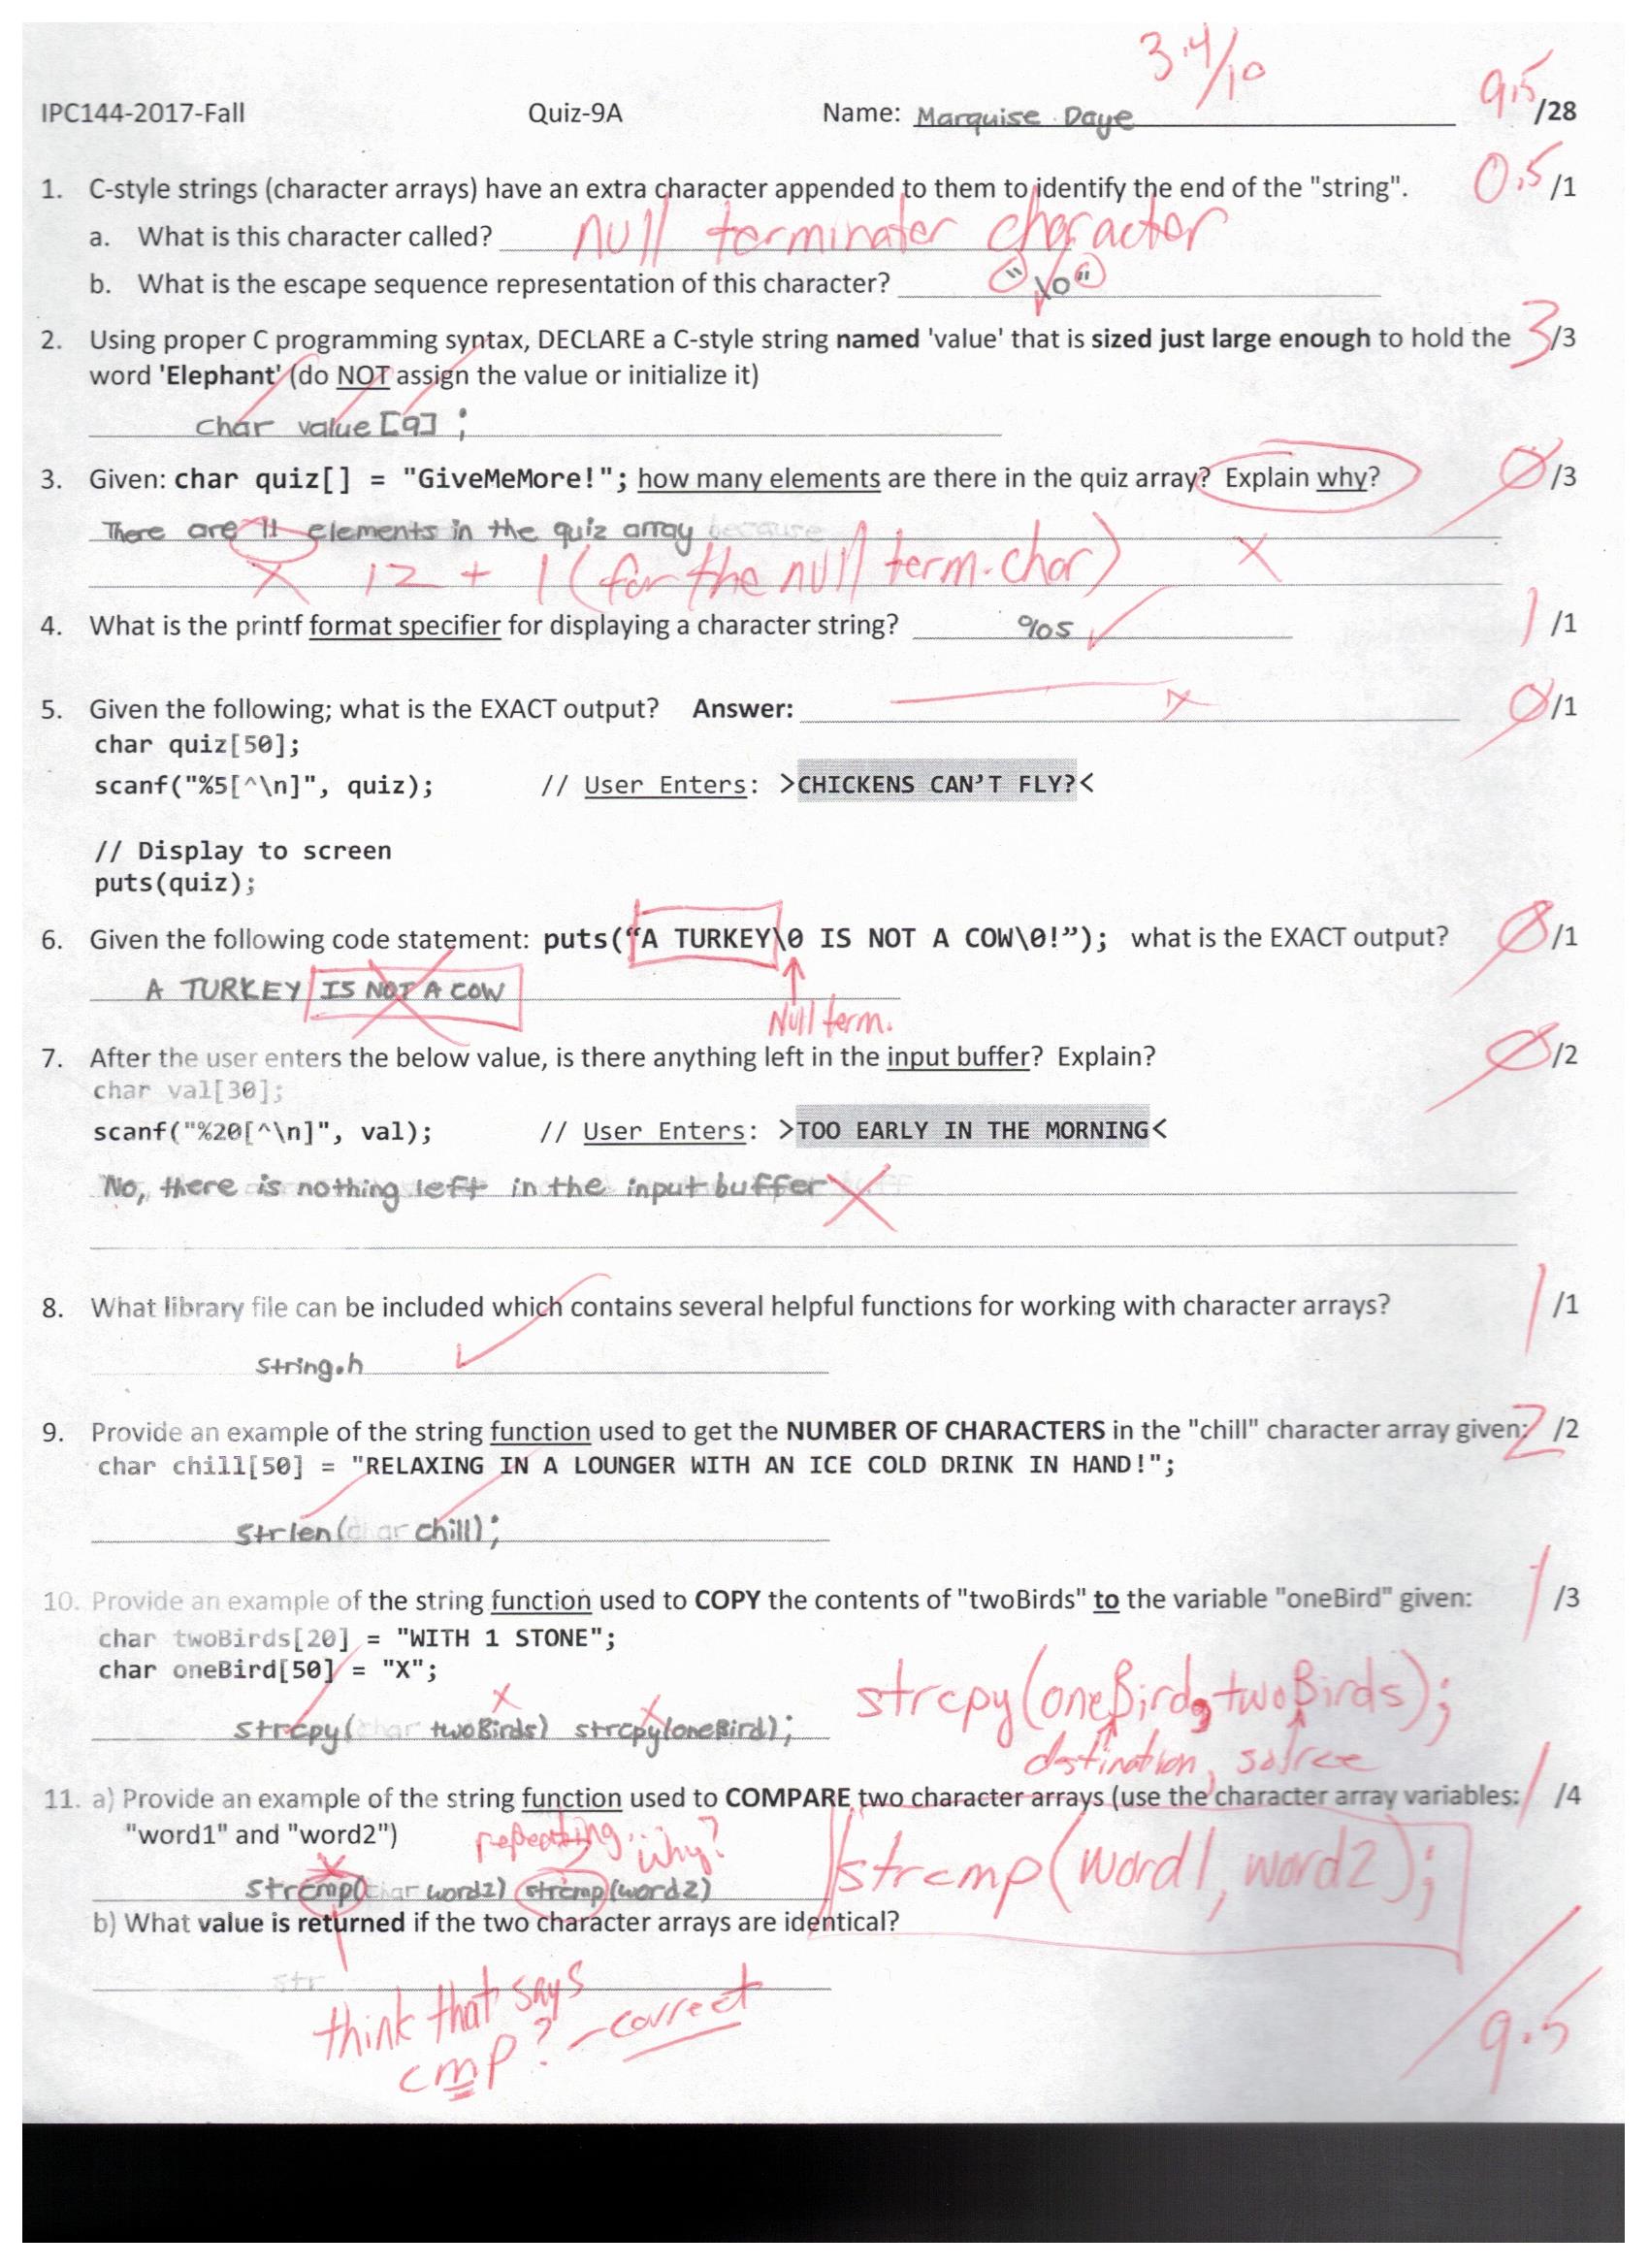 3.4/10
IPC144-2017-Fall Quiz-9A Name: Marquise Daye 9.5/28
1. C-style strings (character arrays) have an extra character appended to them to identify the end of the "string". 0.5/1
a. What is this character called? null terminater character
b. What is the escape sequence representation of this character? "\0"
2. Using proper C programming syntax, DECLARE a C-style string named 'value' that is sized just large enough to hold the 3/3
word 'Elephant' (do NOT assign the value or initialize it)
char value[9];
3. Given: char quiz[] = "GiveMeMore!"; how many elements are there in the quiz array? Explain why? 0/3
There are 11 elements in the quiz array because
X 12 + 1 (for the null term. char) X
4. What is the printf format specifier for displaying a character string? %s 1/1
5. Given the following; what is the EXACT output? Answer: X 0/1
char quiz[50];
scanf("%5[^\n]", quiz); // User Enters: >CHICKENS CAN'T FLY?<
// Display to screen
puts(quiz);
6. Given the following code statement: puts("A TURKEY\0 IS NOT A COW\0!"); what is the EXACT output? 0/1
A TURKEY IS NOT A COW
Null term.
7. After the user enters the below value, is there anything left in the input buffer? Explain? 0/2
char val[30];
scanf("%20[^\n]", val); // User Enters: >TOO EARLY IN THE MORNING<
No, there is nothing left in the input buffer X
8. What library file can be included which contains several helpful functions for working with character arrays? 1/1
string.h
9. Provide an example of the string function used to get the NUMBER OF CHARACTERS in the "chill" character array given: 2/2
char chill[50] = "RELAXING IN A LOUNGER WITH AN ICE COLD DRINK IN HAND!";
strlen(char chill);
10. Provide an example of the string function used to COPY the contents of "twoBirds" to the variable "oneBird" given: 1/3
char twoBirds[20] = "WITH 1 STONE";
char oneBird[50] = "X";
strcpy(oneBird, twoBirds);
strcpy(char twoBirds) strcpy(oneBird);
dstination, source
11. a) Provide an example of the string function used to COMPARE two character arrays (use the character array variables: 1/4
"word1" and "word2")
repeating.. why?
strcmp(word1, word2);
strcmp(char word1) strcmp(word2)
b) What value is returned if the two character arrays are identical?
str
think that says
cmp? - correct
9.5